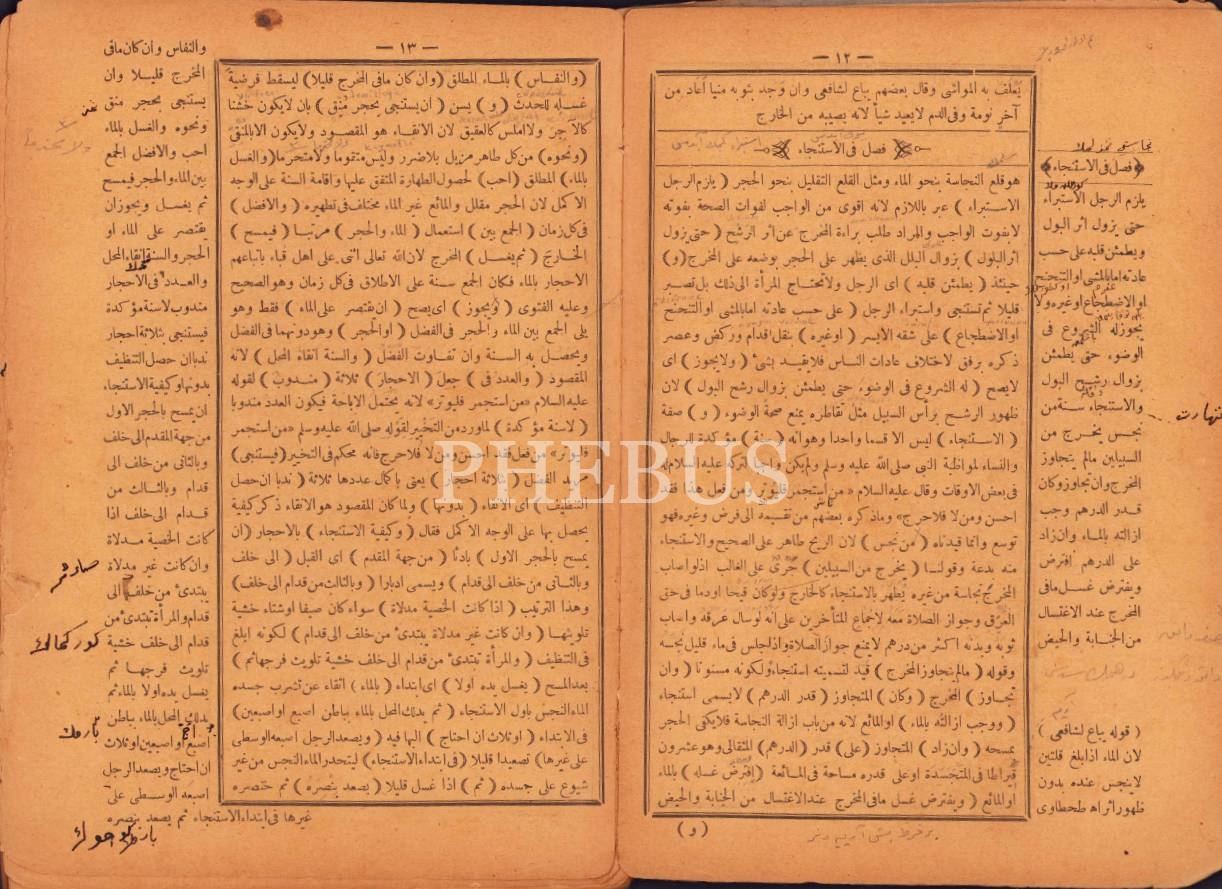 — ١٢ —
يعلف به المواشى وقال بعضهم يباع لشافعى وان وجد بثوبه منيا أعاد من
آخر نومة وفى الدم لايعيد شيأ لانه يصيبه من الخارج
فصل فى الاستنجاء
هو قلع النجاسة بنحو الماء ومثل القلع التقليل بنحو الحجر ( يلزم الرجل
الاستبراء ) عبر باللازم لانه اقوى من الواجب لفوات الصحة بفوته
لابفوت الواجب والمراد طلب براءة المخرج عن اثر الرشح ( حتى يزول
اثر البول ) بزوال البلل الذى يظهر على الحجر بوضعه على المخرج ( و )
حينئذ ( يطمئن قلبه ) اى الرجل ولاتحتاج المرأة الى ذلك بل تصبر
قليلا ثم تستنجى واستبراء الرجل ( على حسب عادته اما بالمشى او التنحنح
او الاضطجاع ) على شقه الايسر ( او غيره ) بنقل اقدام وركض وعصر
ذكره برفق لاختلاف عادات الناس فلايقيد بشئ ( ولايجوز ) اى
لايصح ( له الشروع فى الوضوء حتى يطمئن بزوال رشح البول ) لان
ظهور الرشح برأس السبيل مثل تقاطره يمنع صحة الوضوء ( و ) صفة
( الاستنجاء ) ليس الا قسما واحدا وهو انه ( سنة ) مؤكدة للرجال
والنساء لمواظبة النبى صلى الله عليه وسلم ولم يكن واجبا لتركه عليه السلام له
فى بعض الاوقات وقال عليه السلام « من استجمر فليوتر ومن فعل هذا فقد
احسن ومن لا فلاحرج » وماذكره بعضهم من تقسيمه الى فرض وغيره فهو
توسع وانما قيدناه ( من نجس ) لان الريح طاهر على الصحيح والاستنجاء
منه بدعة وقولنا ( يخرج من السبيلين ) جرى على الغالب اذ لو اصاب
المخرج نجاسة من غيره يطهر بالاستنجاء كالخارج ولو كان قيحا او دما فى حق
العرق وجواز الصلاة معه لاجماع المتأخرين على انه لوسال عرقه واصاب
ثوبه وبدنه اكثر من درهم لايمنع جواز الصلاة واذا جلس فى ماء قليل نجسه
وقوله ( مالم يتجاوز المخرج ) قيد لتسميته استنجاء ولكونه مسنونا ( وان
تجاوز ) المخرج ( وكان ) المتجاوز ( قدر الدرهم ) لايسمى استنجاء
( ووجب ازالته بالماء ) او المائع لانه من باب ازالة النجاسة فلايكفى الحجر
بمسحه ( وان زاد ) المتجاوز ( على ) قدر ( الدرهم ) المثقالى وهو عشرون
قيراطا فى المتجسدة او على قدره مساحة فى المائعة ( افترض غسله ) بالماء
او المائع ( ويفترض غسل مافى المخرج عند الاغتسال من الجنابة والحيض
( و )
فصل فى الاستنجاء
يلزم الرجل الاستبراء
حتى يزول اثر البول
ويطمئن قلبه على حسب
عادته اما بالمشى او التنحنح
او الاضطجاع او غيره ولا
يجوز له الشروع فى
الوضوء حتى يطمئن
بزوال رشح البول
والاستنجاء سنة من
نجس يخرج من
السبيلين مالم يتجاوز
المخرج وان تجاوز وكان
قدر الدرهم وجب
ازالته بالماء وان زاد
على الدرهم افترض
ويفترض غسل مافى
المخرج عند الاغتسال
من الجنابة والحيض
( قوله يباع لشافعى )
لان الماء اذا بلغ قلتين
لاينجس عنده بدون
ظهور اثر اه طحطاوى
— ١٣ —
( والنفاس ) بالماء المطلق ( وان كان مافى المخرج قليلا ) ليسقط فرضية
غسله للحدث ( و ) يسن ( ان يستنجى بحجر منق ) بان لايكون خشنا
كالآجر ولا املس كالعقيق لان الانقاء هو المقصود ولايكون الا بالمنقى
( ونحوه ) من كل طاهر مزيل بلاضرر وليس متقوما ولامحترما ( والغسل
بالماء ) المطلق ( احب ) لحصول الطهارة المتفق عليها واقامة السنة على الوجه
الاكمل لان الحجر مقلل والمائع غير الماء مختلف فى تطهيره ( والافضل )
فى كل زمان ( الجمع بين ) استعمال ( الماء والحجر ) مرتبا ( فيمسح )
الخارج ( ثم يغسل ) المخرج لان الله تعالى اثنى على اهل قباء باتباعهم
الاحجار بالماء فكان الجمع سنة على الاطلاق فى كل زمان وهو الصحيح
وعليه الفتوى ( ويجوز ) اى يصح ( ان يقتصر على الماء ) فقط وهو
يلى الجمع بين الماء والحجر فى الفضل ( او الحجر ) وهو دونهما فى الفضل
ويحصل به السنة وان تفاوت الفضل ( والسنة انقاء المحل ) لانه
المقصود ( والعدد فى ) جعل ( الاحجار ) ثلاثة ( مندوب ) لقوله
عليه السلام « من استجمر فليوتر » لانه محتمل الاباحة فيكون العدد مندوبا
( لاسنة مؤكدة ) لماورد من التخيير لقوله صلى الله عليه وسلم « من استجمر
فليوتر » من فعل فقد احسن ومن لا فلاحرج فانه محكم فى التخيير ( فيستنجى )
مريد الفضل ( بثلاثة احجار ) يعنى باكمال عددها ثلاثة ( ندبا ان حصل
التنظيف ) اى الانقاء ( بدونها ) ولما كان المقصود هو الانقاء ذكر كيفية
يحصل بها على الوجه الاكمل فقال ( وكيفية الاستنجاء ) بالاحجار ( ان
يمسح بالحجر الاول ) بادئا ( من جهة المقدم ) اى القبل ( الى خلف
وبالثانى من خلف الى قدام ) ويسمى ادبارا ( وبالثالث من قدام الى خلف )
وهذا الترتيب ( اذا كانت الخصية مدلاة ) سواء كان صيفا او شتاء خشية
تلوثها ( وان كانت غير مدلاة يبتدئ من خلف الى قدام ) لكونه ابلغ
فى التنظيف ( والمرأة تبتدئ من قدام الى خلف خشية تلويث فرجها ثم )
بعد المسح ( يغسل يده اولا ) اى ابتداء ( بالماء ) اتقاء عن تشرب جسده
الماء النجس باول الاستنجاء ( ثم يدلك المحل بالماء بباطن أصبع او اصبعين )
فى الابتداء ( او ثلاث ان احتاج ) اليها فيه ( ويصعد الرجل اصبعه الوسطى
على غيرها ) تصعيدا قليلا ( فى ابتداء الاستنجاء ) لينحدر الماء النجس من غير
شيوع على جسده ( ثم ) اذا غسل قليلا ( يصعد بنصره ) ثم خنصره
والنفاس وان كان مافى
المخرج قليلا وان
يستنجى بحجر منق
ونحوه والغسل بالماء
احب والافضل الجمع
بين الماء والحجر فيمسح
ثم يغسل ويجوز ان
يقتصر على الماء او
الحجر والسنة انقاء المحل
والعدد فى الاحجار
مندوب لاسنة مؤكدة
فيستنجى بثلاثة احجار
ندبا ان حصل التنظيف
بدونها وكيفية الاستنجاء
ان يمسح بالحجر الاول
من جهة المقدم الى خلف
وبالثانى من خلف الى
قدام وبالثالث من
قدام الى خلف اذا
كانت الخصية مدلاة
وان كانت غير مدلاة
يبتدئ من خلف الى
قدام والمرأة تبتدئ من
قدام الى خلف خشية
تلويث فرجها ثم
يغسل يده اولا بالماء ثم
يدلك المحل بالماء بباطن
اصبع او اصبعين او ثلاث
ان احتاج ويصعد الرجل
اصبعه الوسطى على
غيرها فى ابتداء الاستنجاء ثم يصعد بنصره
PHEBUS